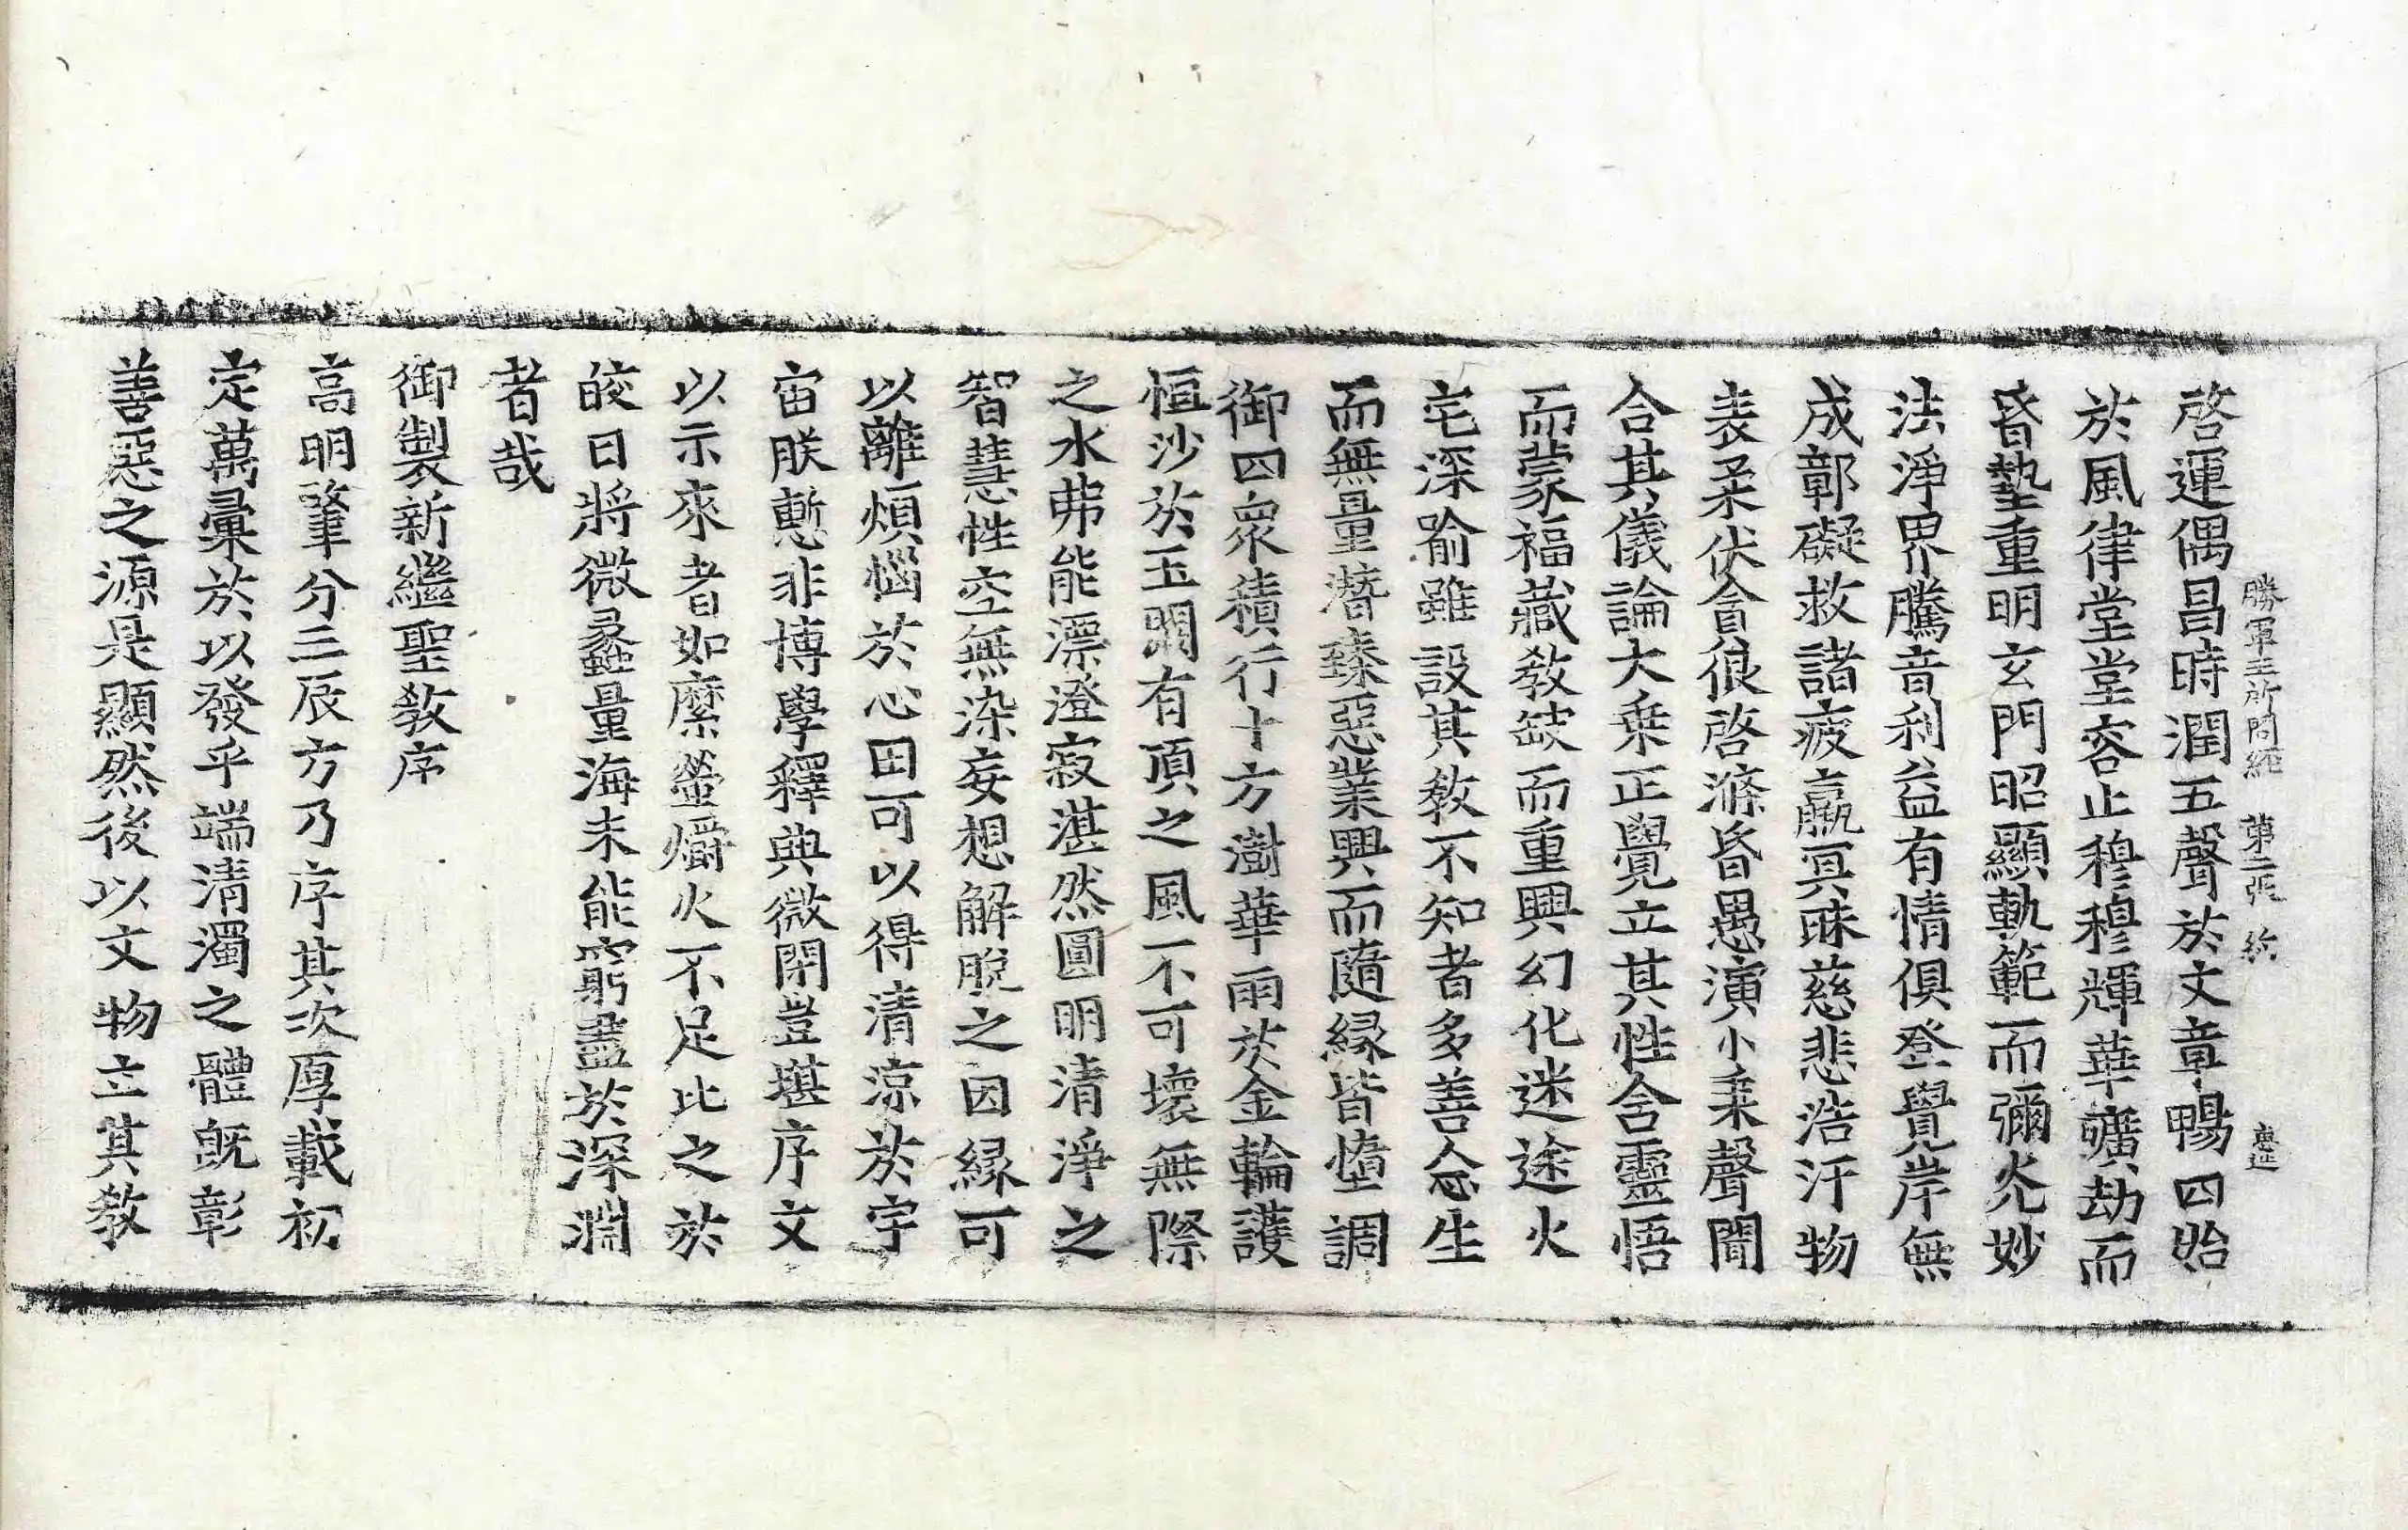 勝軍王所問經 第二張 給
啓運偶昌時潤五聲於文章暢四始
於風律堂堂容止穆穆輝華曠劫而
昏蟄重明玄門昭顯軌範而彌光妙
法淨界騰音利益有情俱登覺岸無
成鄣礙救諸疲羸冥昧慈悲浩汗物
表柔伏貪很啓滌昏愚演小乘聲聞
合其儀論大乘正覺立其性含靈悟
而蒙福藏教缺而重興幻化迷途火
宅深喻雖設其教不知者多善念生
而無量潛臻惡業興而隨緣皆墮調
御四衆積行十方澍華雨於金輪護
恒沙於玉闕有頂之風不可壞無際
之水弗能漂澄寂湛然圓明清淨之
智慧性空無染妄想解脫之因緣可
以離煩惱於心田可以得清涼於宇
宙朕慙非博學釋典微閑豈堪序文
以示來者如縻螢爝火不足比之於
皎日將微蠡量海未能窮盡於深淵
者哉
御製新繼聖教序
高明肇分三辰方乃序其次厚載初
定萬彙於以發乎端清濁之體既彰
善惡之源是顯然後以文物立其教